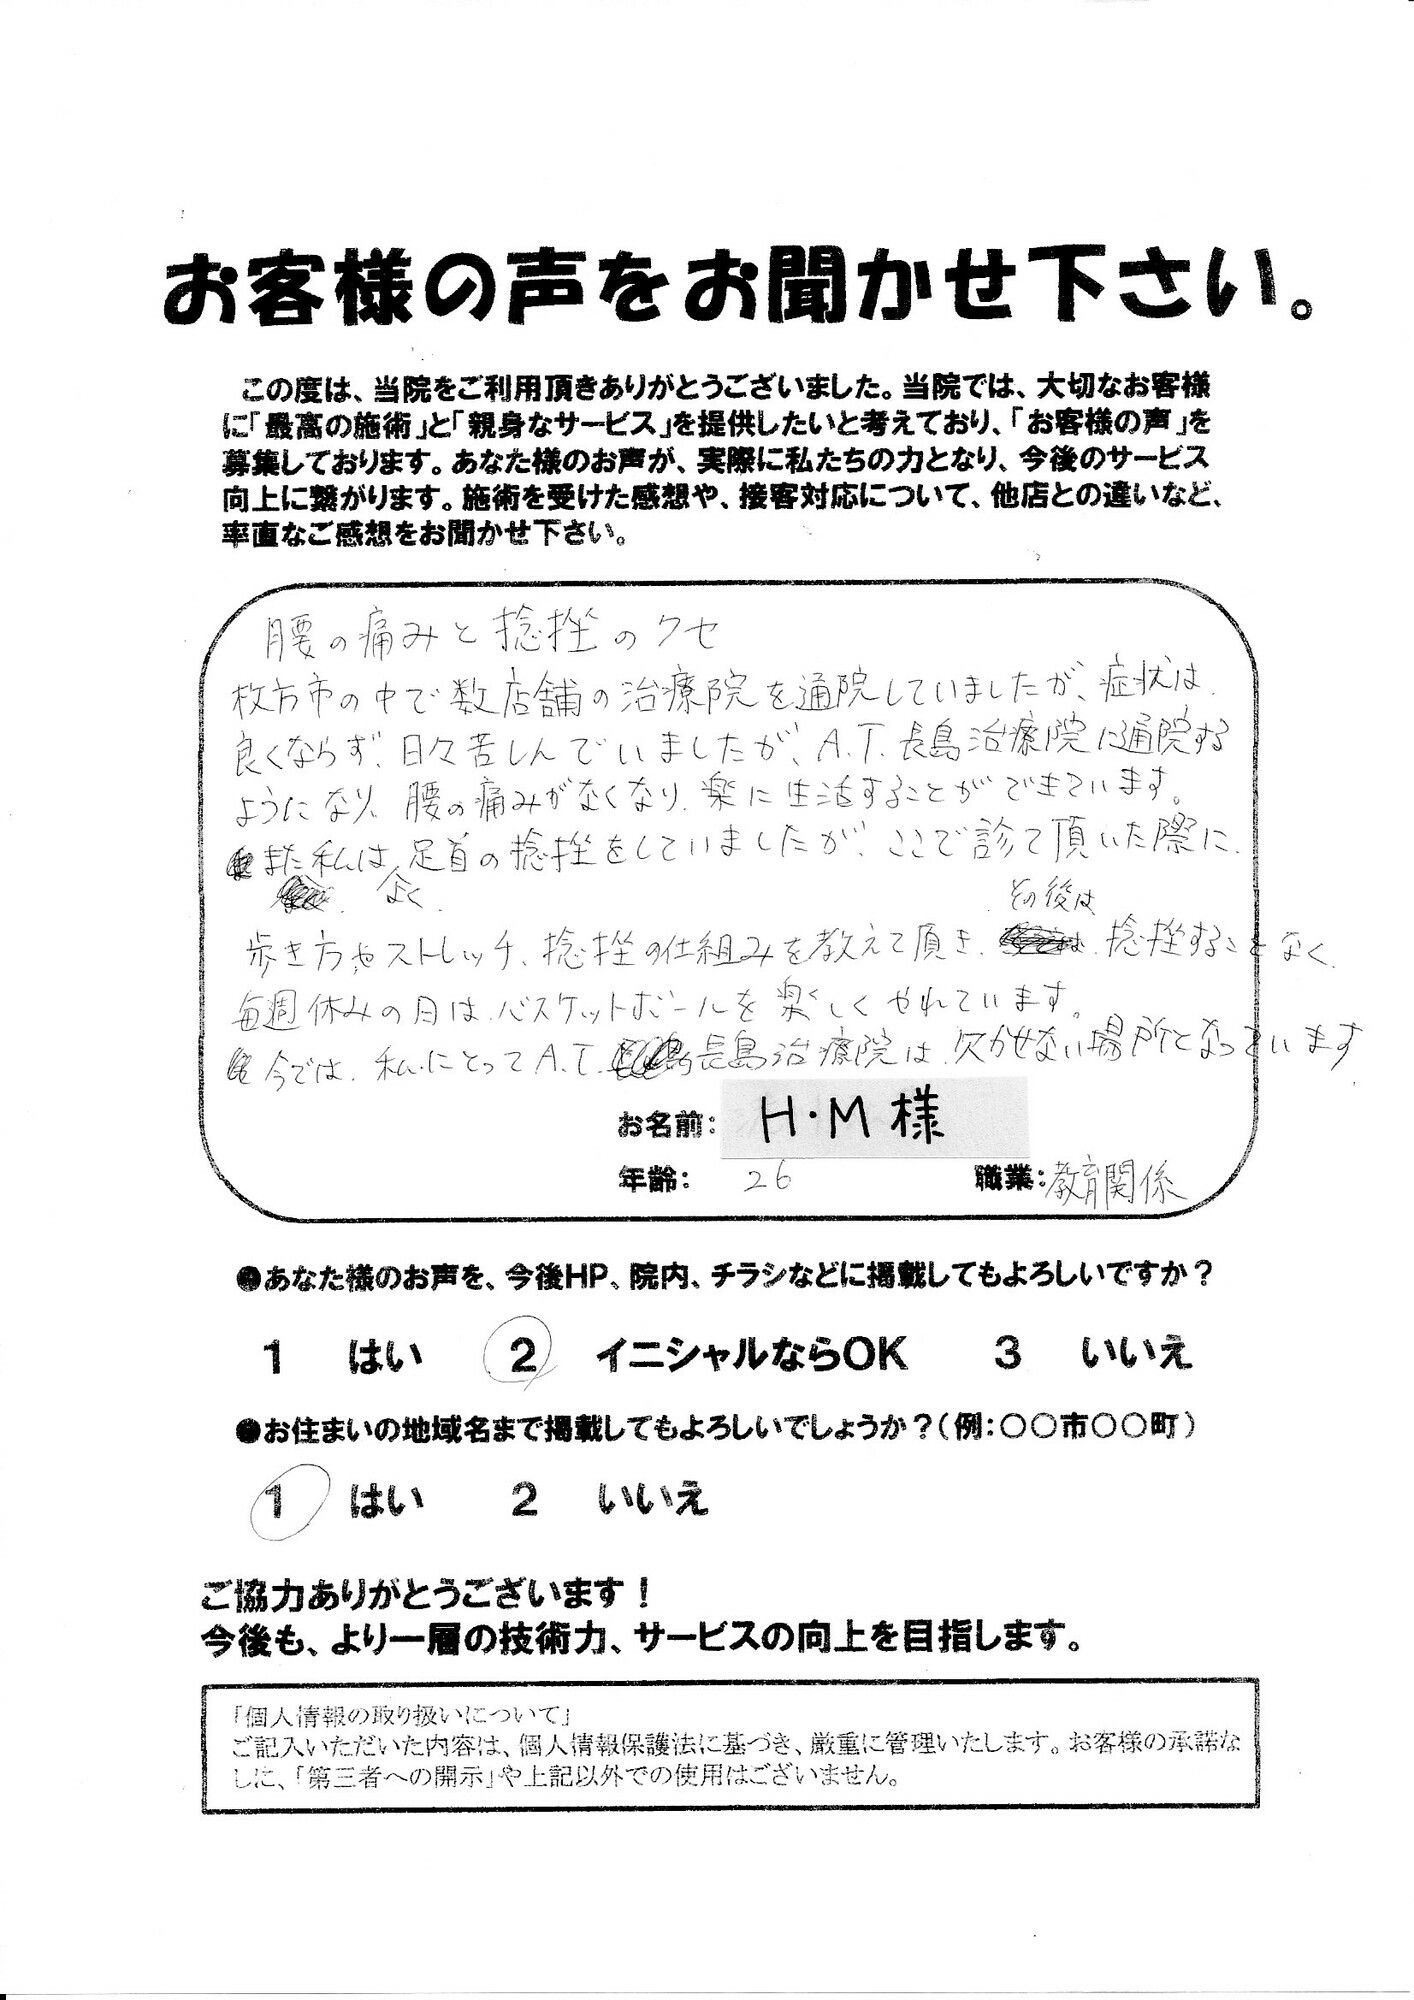 お客様の声をお聞かせ下さい。
この度は、当院をご利用頂きありがとうございました。当院では、大切なお客様
に「最高の施術」と「親身なサービス」を提供したいと考えており、「お客様の声」を
募集しております。あなた様のお声が、実際に私たちの力となり、今後のサービス
向上に繋がります。施術を受けた感想や、接客対応について、他店との違いなど、
率直なご感想をお聞かせ下さい。
腰の痛みと捻挫のクセ
枚方市の中で数店舗の治療院を通院していましたが、症状は
良くならず、日々苦しんでいましたが、A.T.長島治療院に通院する
ようになり、腰の痛みがなくなり、楽に生活することができています。
また私は、足首の捻挫をしていましたが、ここで診て頂いた際に、
よく
その後は
歩き方やストレッチ、捻挫の仕組みを教えて頂き、捻挫することなく、
毎週休みの日は、バスケットボールを楽しくやれています。
今では、私にとってA.T.長島治療院は、欠かせない場所となっています
お名前: H・M様
年齢: 26 職業: 教育関係
●あなた様のお声を、今後HP、院内、チラシなどに掲載してもよろしいですか?
1 はい 2 イニシャルならOK 3 いいえ
●お住まいの地域名まで掲載してもよろしいでしょうか?(例:○○市○○町)
1 はい 2 いいえ
ご協力ありがとうございます!
今後も、より一層の技術力、サービスの向上を目指します。
「個人情報の取り扱いについて」
ご記入いただいた内容は、個人情報保護法に基づき、厳重に管理いたします。お客様の承諾な
しに、「第三者への開示」や上記以外での使用はございません。